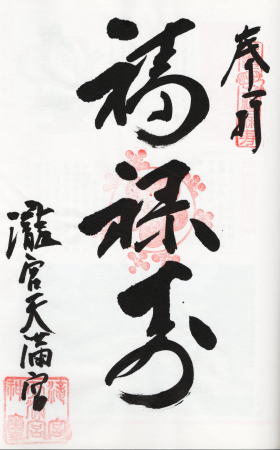 奉拝
福禄寿
瀧宮天満宮